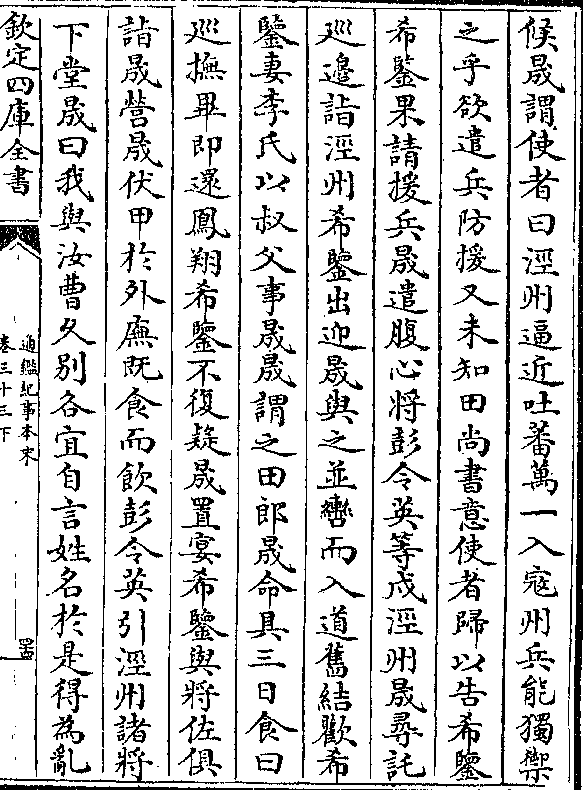 候晟謂使者曰涇州逼近吐蕃萬一入寇州兵能獨禦
之乎欲遣兵防援又未知田尚書意使者歸以告希鑒
希鑒果請援兵晟遣腹心將彭令英等戍涇州晟尋託
巡邉詣涇州希鑒出迎晟與之並轡而入道舊結歡希
鑒妻李氏以叔父事晟晟謂之田郎晟命具三日食曰
巡撫畢即還鳳翔希鑒不復疑晟置宴希鑒與將佐俱
詣晟營晟伏甲於外廡既食而飲彭令英引涇州諸將
下堂晟曰我與汝曹久別各宜自言姓名於是得為亂
欽定四庫全書
通鑑紀事本末
卷三十三下